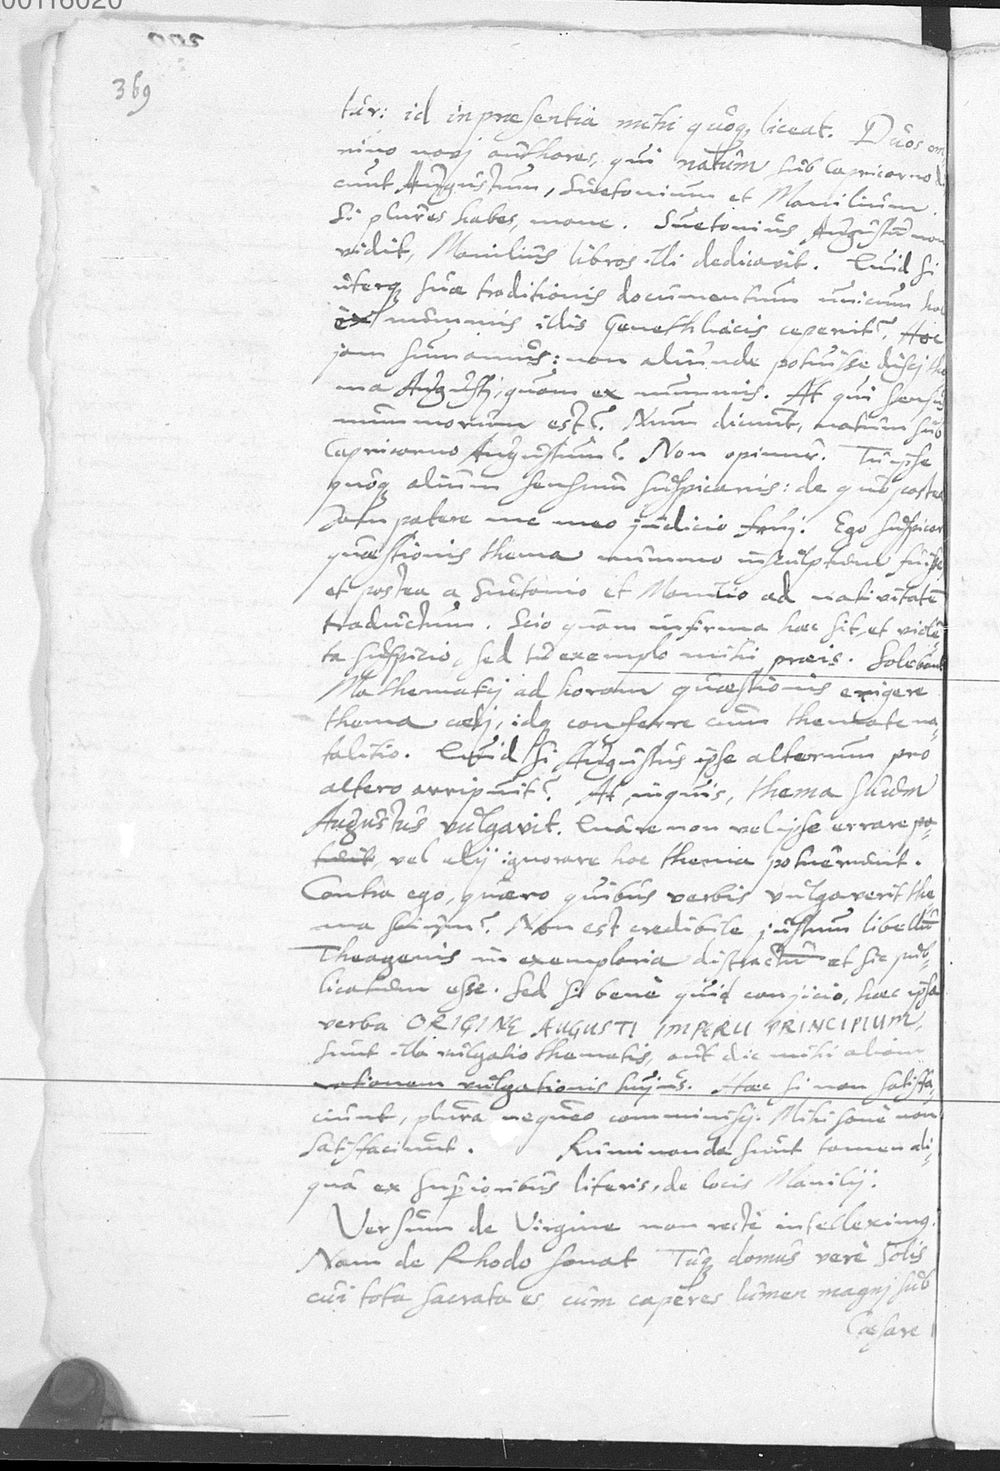 00116020
369
tur: id in præsentia mihi quoq, liceat. Duos om
nino novj authores, qui natum sub Capricorno di
cunt Augustum, Suetonium et Manilium.
Si plures habes, mone. Suetonius Augustū non
vidit, Manilius libros illi dedicavit. Quid si
uterq suæ traditionis documentum unicum hoc
ex nummis istis Genethliacis ceperit? Hoc
jam sumamus: non aliunde potuisse discj the
ma Augustj, quam ex nummis. At qui sensus
nummorum est? Num dicunt, natum sub
Capricorno Augustum? Non opinor. Tu ipse
quoq alium sensum suspicaris: de quo postea
Jam patere me meo judicio fruj. Ego suspicor
quæstionis thema nummo insculptum fuisse
et postea a Suetonio et Manilio ad nativitatē
traductum. Scio quam infirma hæc sit, et violē
ta suspicio, sed tu exemplo mihi præis. Solebant
Mathematicj ad horam quæstionis erigere
thema cœlj, idq conferre cum themate na-
talitio. Quid si Augustus ipse alterum pro
altero arripuit? At, inquis, thema suum
Augustus vulgavit. Quare non vel ipse errare po-
tuit, vel alij ignorare hoc thema potuerunt.
Contra ego, quæro quibus verbis vulgaverit the-
ma suum? Non est credibile justum libellū
Theagenis in exemplaria distractū et sic pub-
licatum esse. Sed si bene quid conjicio, hæc ipsa
verba ORIGINE AUGUSTI IMPERII PRINCIPIUM,
sunt illa vulgatio thematis, aut dic mihi aliam
rationem vulgationis hujus. Hæc si non satisfa-
ciunt, plura nequeo comminiscj. Mihi sane non
satisfaciunt. Ruminanda sunt tamen ali-
qua ex superioribus literis, de locis Manilij.
Versum de Virgine non recte intelleximus.
Nam de Rhodo sonat Tuq domus vere Solis
cui tota sacrata es, cum caperes lumen magnj sub
Cæsare